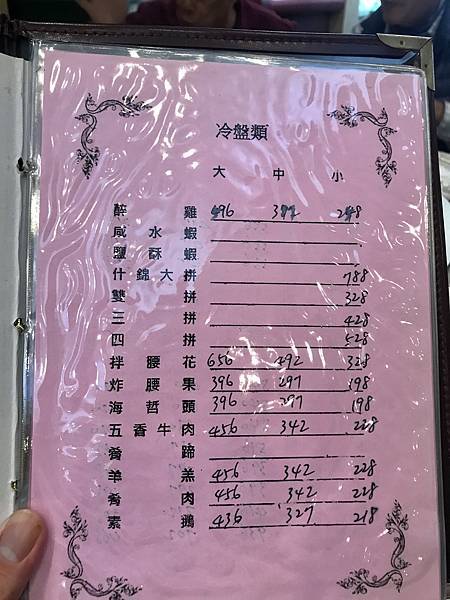 冷盤類
大 中 小
醉雞 496 248
咸水蝦
鹽酥蝦
什錦大拼 788
雙拼 328
三拼 428
四拼 528
拌腰花 656 492 328
炸腰果 396 297 198
海哲頭 396 297 198
五香牛肉 456 342 228
肴蹄
羊羔 456 342 228
肴肉 456 342 228
素鵝 436 327 218